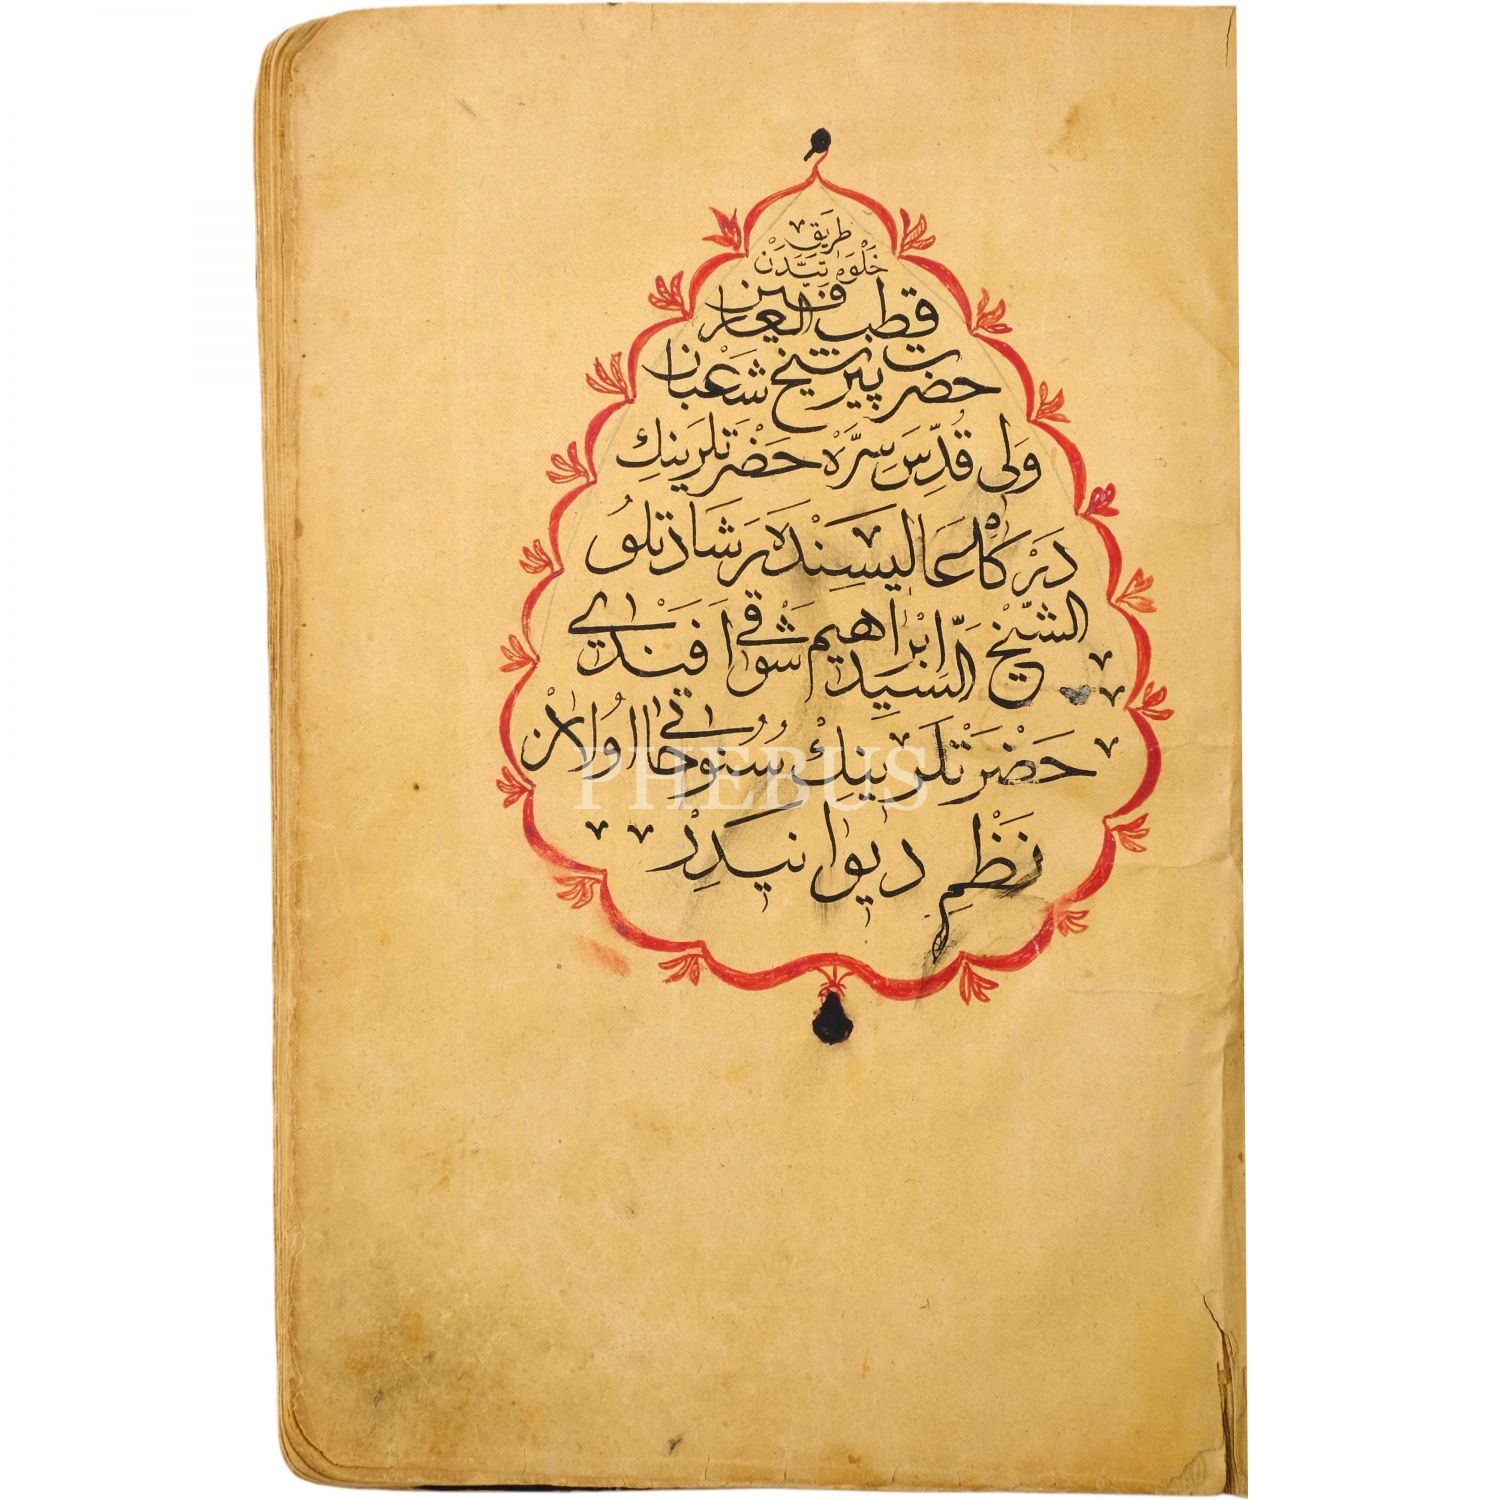 طريق
خَلْوَتيَّدَنْ
قطب العارفين
حضرت پير شيخ شَعْبَان
وَلِى قُدِّسَ سِرَّهْ حَضْرَتْلَرِينِكْ
دَرْكَاهِ عَالِيسِنْدَه رَشَادَتْلُو
الشَّيْخ السَيِّد اِبْرَاهيم شَوْقِى اَفَنْدِى
حَضْرَتْلَرِينِكْ سُنُوحَاتِى اُولَانْ
نَظْمِ دِيوَانِيدِرْ
PHEBUS